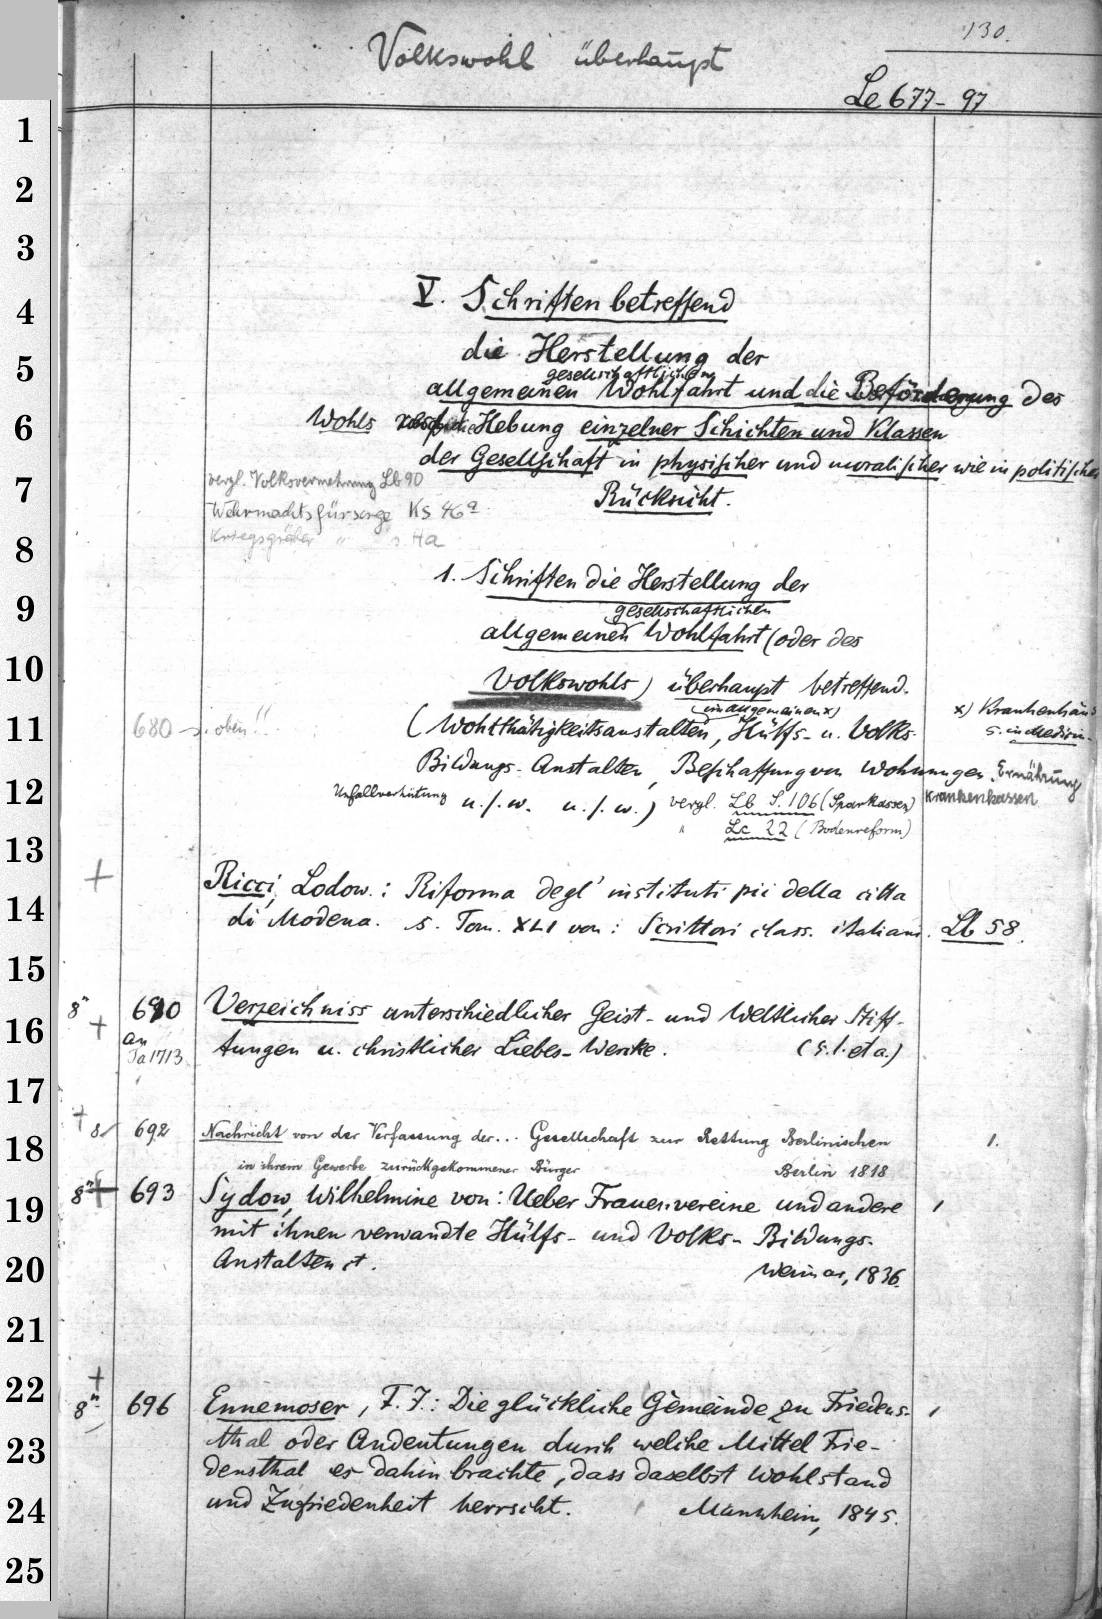 130.
Volkswohl überhaupt
Le 677-97
V. Schriften betreffend
die Herstellung der
gesellschaftlichen
allgemeinen Wohlfahrt und die Beförderung des
Wohls Hebung einzelner Schichten und Klassen
der Gesellschaft in physischer und moralischer wie in politischer
vergl. Volksvermehrung Lb 90
Rücksicht.
Wehrmachtsfürsorge Ks 46a
Kriegsgräber " s. Ha
1. Schriften die Herstellung der
gesellschaftlichen
allgemeinen Wohlfahrt (oder des
Volkswohls) überhaupt betreffend.
(im allgemeinen x)
x) Krankenhäus
680 s. oben!!
(Wohlthätigkeitsanstalten, Hülfs- u. Volks-
s. in Medicin.
Bildungs-Anstalten, Beschaffung von Wohnungen, Ernährung
Unfallverhütung u.s.w. u.s.w.) vergl. Lb S. 106 (Sparkassen) Krankenkassen
" Lc 22 (Bodenreform)
+ Ricci, Lodow.: Riforma degl' instituti pii della citta
di Modena. s. Tom. XLI von: Scrittori class. italiani. Lb 58.
8" + 690 Verzeichniss unterschiedlicher Geist- und Weltlicher Stiff-
an Ta 1713 tungen u. christlicher Liebes-Wercke. (s. l. et a.)
+ 8 692 Nachricht von der Verfassung der... Gesellschaft zur Rettung Berlinischen 1.
in ihrem Gewerbe zurückgekommener Bürger Berlin 1818
8" + 693 Sydow, Wilhelmine von: Ueber Frauenvereine und andere 1
mit ihnen verwandte Hülfs- und Volks-Bildungs-
Anstalten et. Weimar, 1836.
+
8" 696 Ennemoser, F. J.: Die glückliche Gemeinde zu Friedens- 1
thal oder Andeutungen durch welche Mittel Frie-
densthal es dahin brachte, dass daselbst Wohlstand
und Zufriedenheit herrscht. Mannheim, 1845.
1
2
3
4
5
6
7
8
9
10
11
12
13
14
15
16
17
18
19
20
21
22
23
24
25